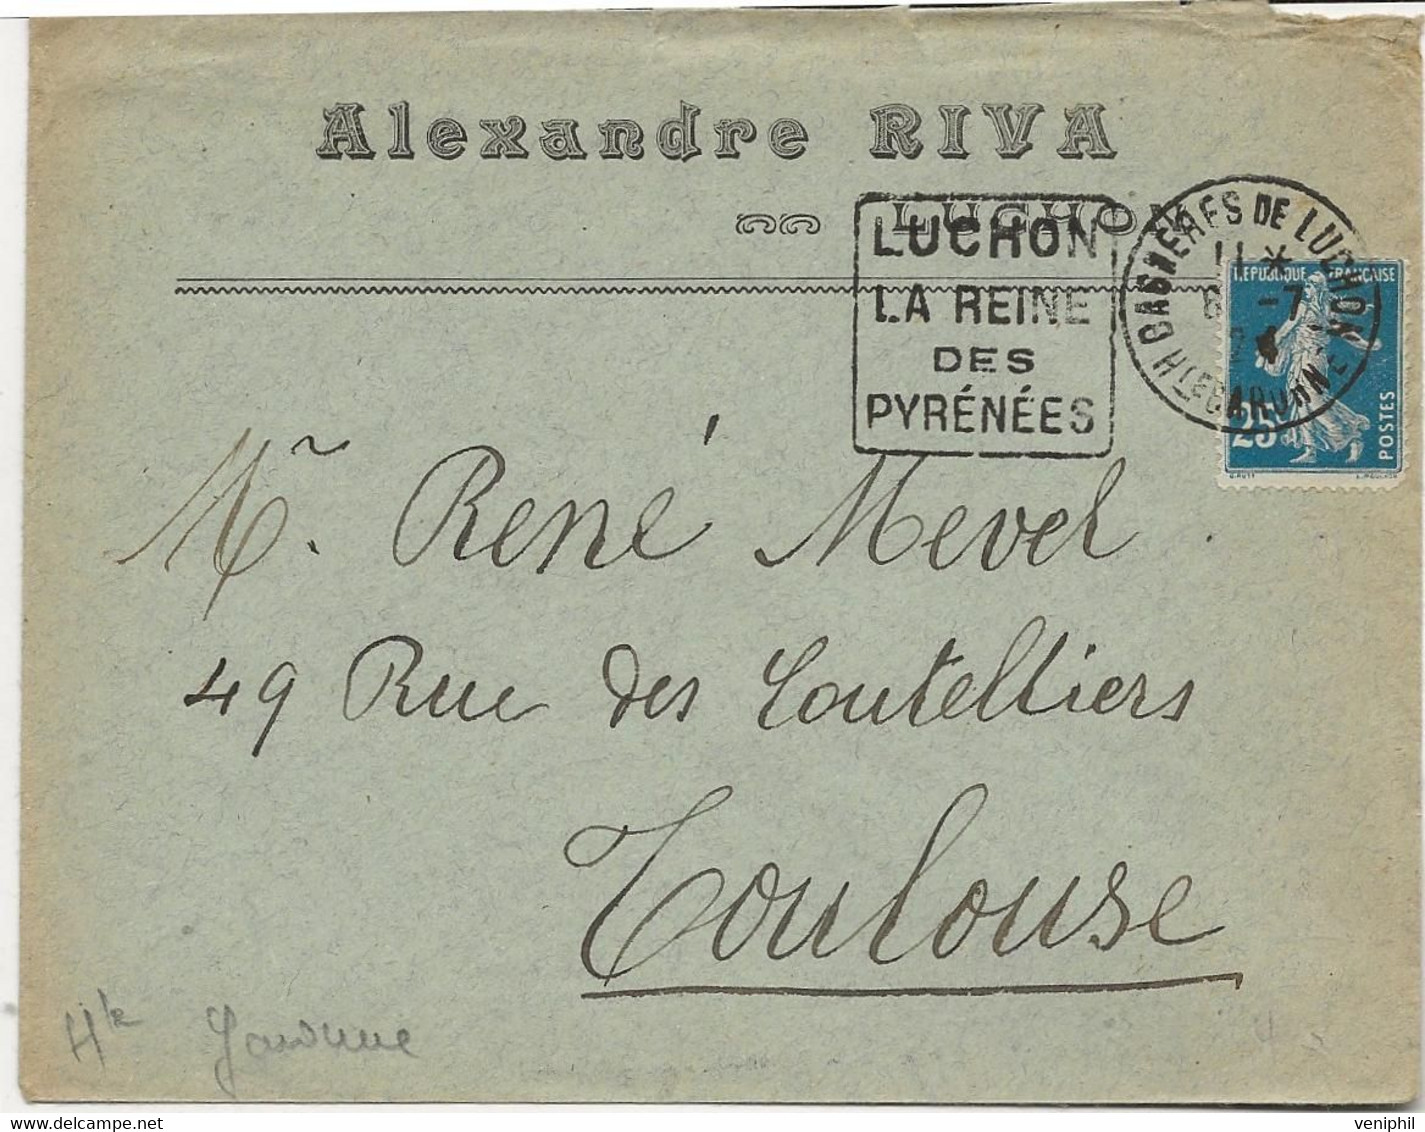 Alexandre RIVA
LUCHON
LUCHON
LA REINE
DES
PYRÉNÉES
BAGNERES DE LUCHON
11 *
-7
Hte GARONNE
REPUBLIQUE FRANÇAISE
25c
POSTES
Mr René Mevel
49 Rue des Coutelliers
Toulouse
Hte Garonne
veniphil